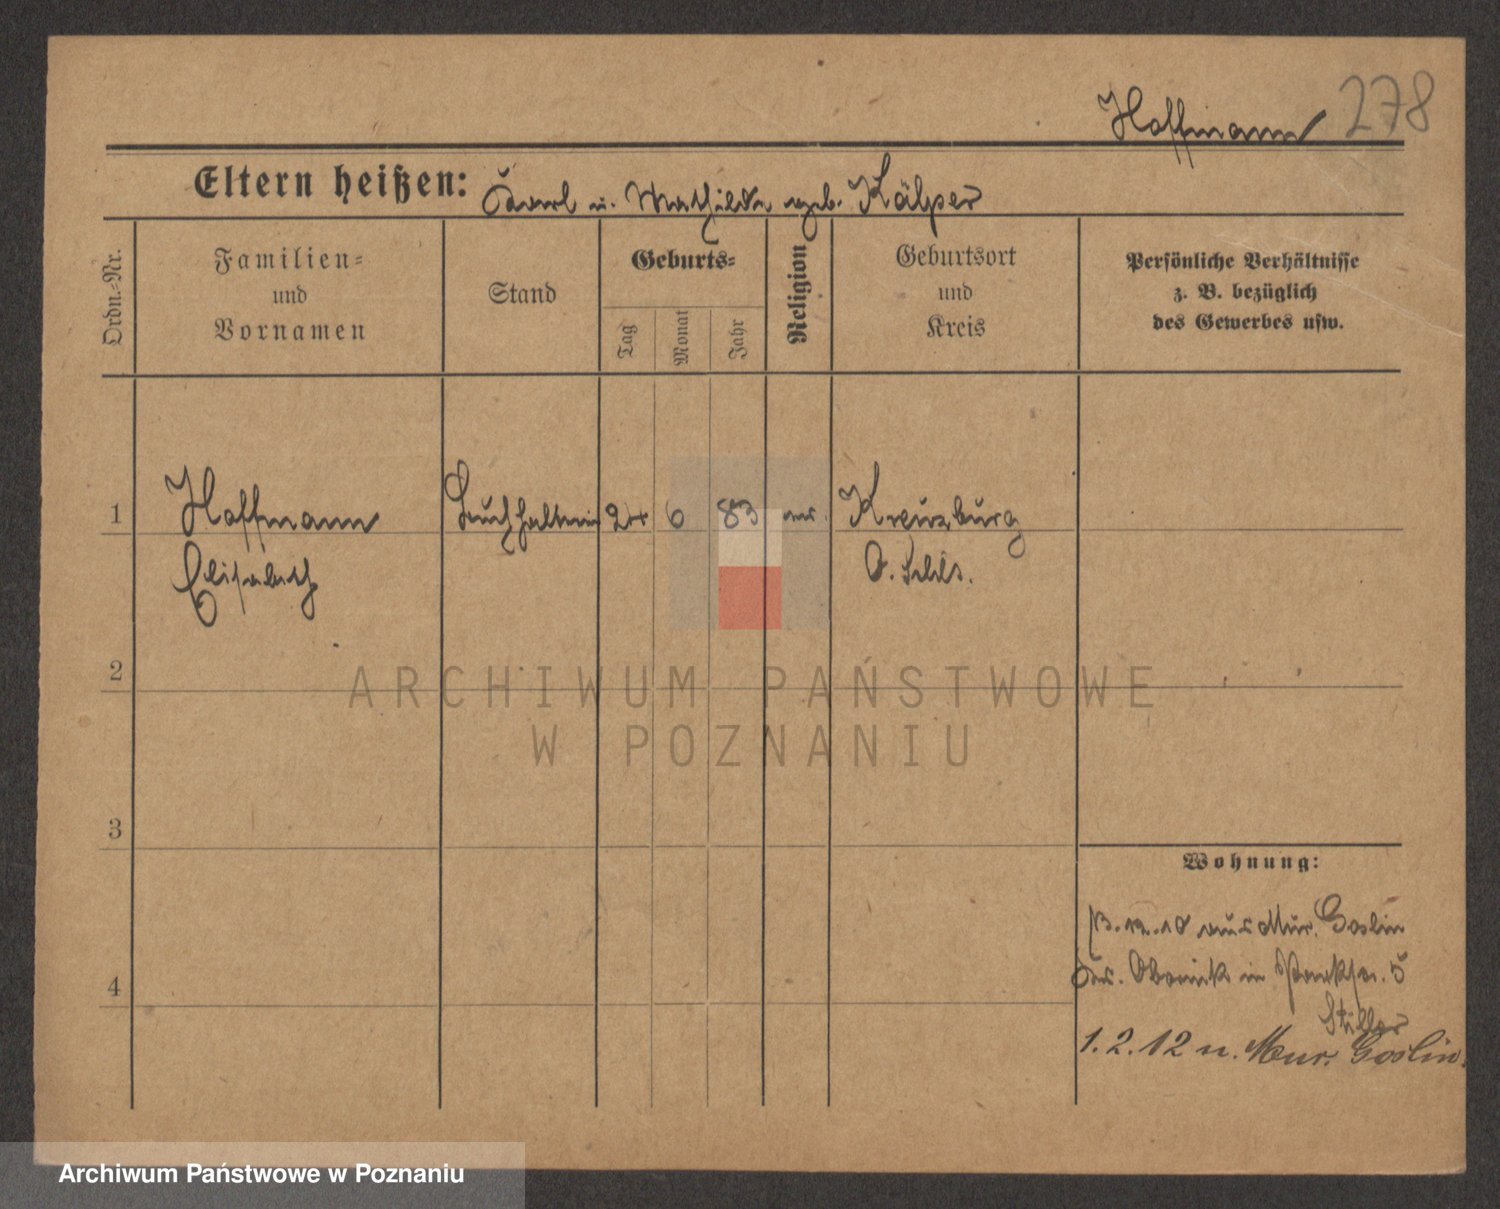 Hoffmann 278
Eltern heißen: Karl u. Mathilde geb. Kälper
Ordn.-Nr.
Familien-
und
Vornamen
Stand
Geburts-
Tag
Monat
Jahr
Religion
Geburtsort
und
Kreis
Persönliche Verhältnisse
z. B. bezüglich
des Gewerbes usw.
1 Hoffmann Buchhalterin 6 83 ev. Kreuzburg
Elisabeth O. Schls.
2
3
4
Wohnung:
12.10 aus Mur. Goslin
Krs. Obornik in Parkstr. 5
Stiller
1.2.12 n. Mur. Goslin.
ARCHIWUM PAŃSTWOWE
W POZNANIU
Archiwum Państwowe w Poznaniu